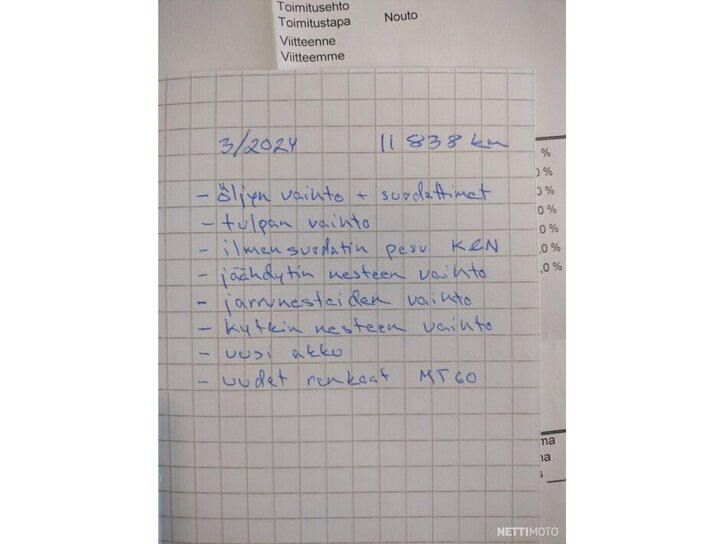 Toimitusehto
Toimitustapa Nouto
Viitteenne
Viitteemme
3/2024 11 838 km
- öljyn vaihto + suodattimet
- tulpan vaihto
- ilmansuodatin pesu K&N
- jäähdytin nesteen vaihto
- jarrunesteiden vaihto
- kytkin nesteen vaihto
- uusi akku
- uudet renkaat MT60
%
0 %
0 %
0 %
,0 %
,0 %
ma
na
s
NETTIMOTO